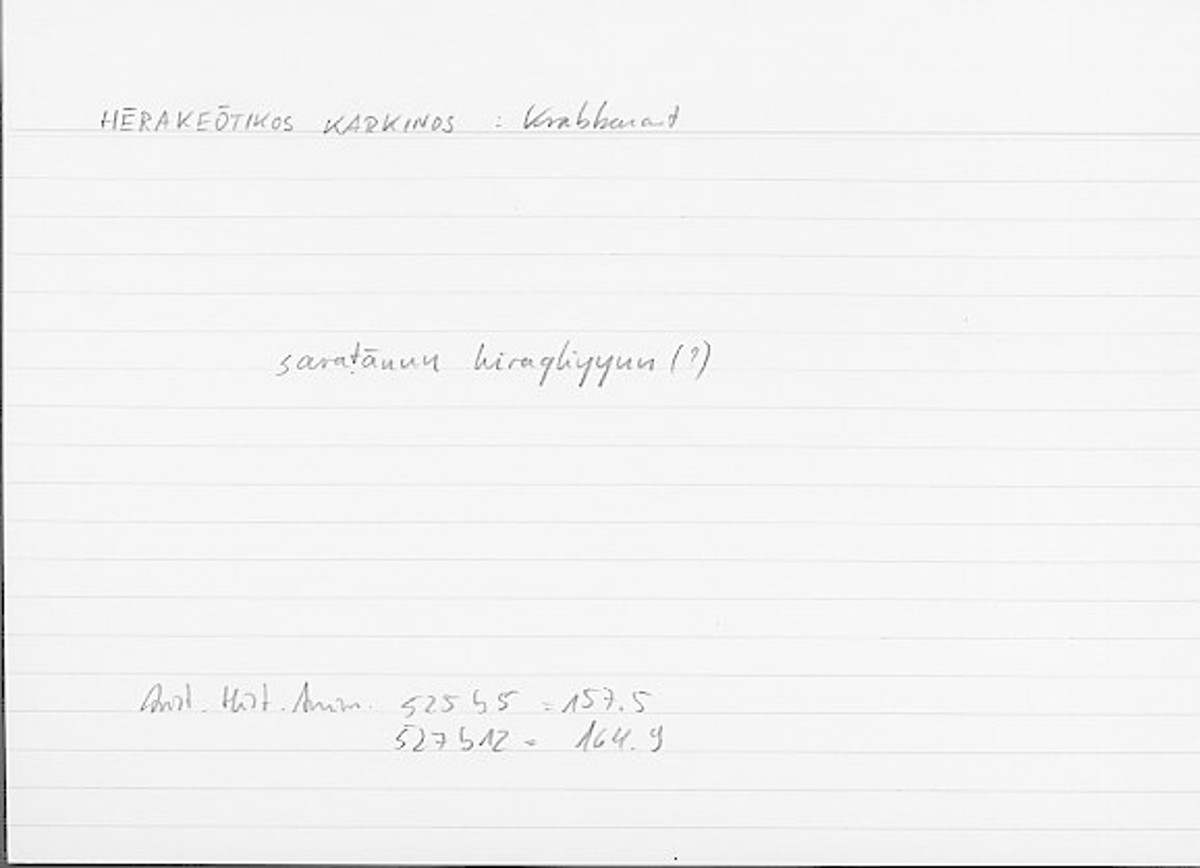 HĒRAKEŌTIKOS KARKINOS : Krabbenart
saraṭānun hiraqliyyun (?)
Arist. Hist. Anim. 525 b 5 = 157.5
527 b 12 = 164.9